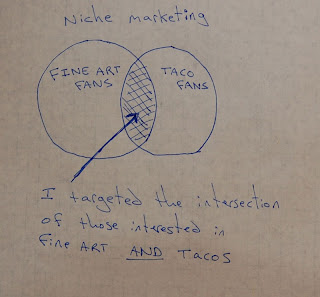 Niche marketing
FINE ART
FANS
TACO
FANS
I targeted the intersection
of those interested in
Fine ART AND TACOS